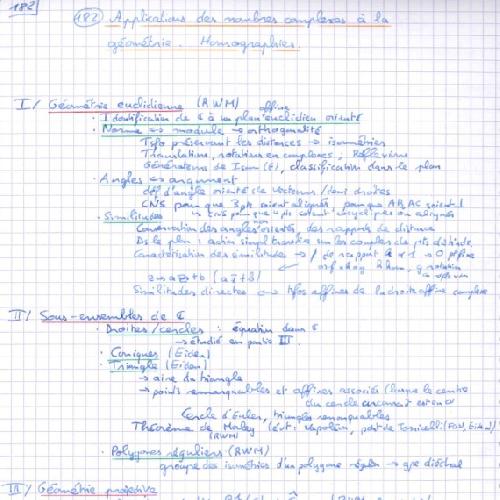 182
182 Applications des nombres complexes à la
géométrie. Homographies.
I/ Géométrie euclidienne (RWM) affine
· Identification de C à un plan euclidien orienté
· Norme ↔ module → orthogonalité
Tsfo préservant les distances → isométries
Translations, rotations en complexes, Réflexions
Générateurs de Isom(E), classification dans le plan
· Angles ↔ argument
déf d'angle orienté de vecteurs / demi droites
CNS pour que 3 pts soient alignés pour que AB, AC soient ⊥
· Similitudes
Conservation des angles orientés des rapports de distance
Ds le plan : action simplt transitive sur les couples de pts distincts
Caractérisation des similitudes →
z → az+b (az̄+b)
Similitudes directes ↔ tsfos affines de la droite affine complexe
II/ Sous-ensembles de C
· Droites/cercles : équation dans C
→ étudié en partie III
· Coniques (Eiden)
· Triangle (Eiden)
→ aire du triangle
→ points remarquables et affixes associés (lorsque le centre
du cercle circonscrit est en 0)
Cercle d'Euler, triangles remarquables
Théorème de Morley (évt : Napoléon, point de Torricelli
(RWM)
· Polygones réguliers (RWM)
groupe des isométries d'un polygone régulier → gpe diédral
III/ Géométrie projective